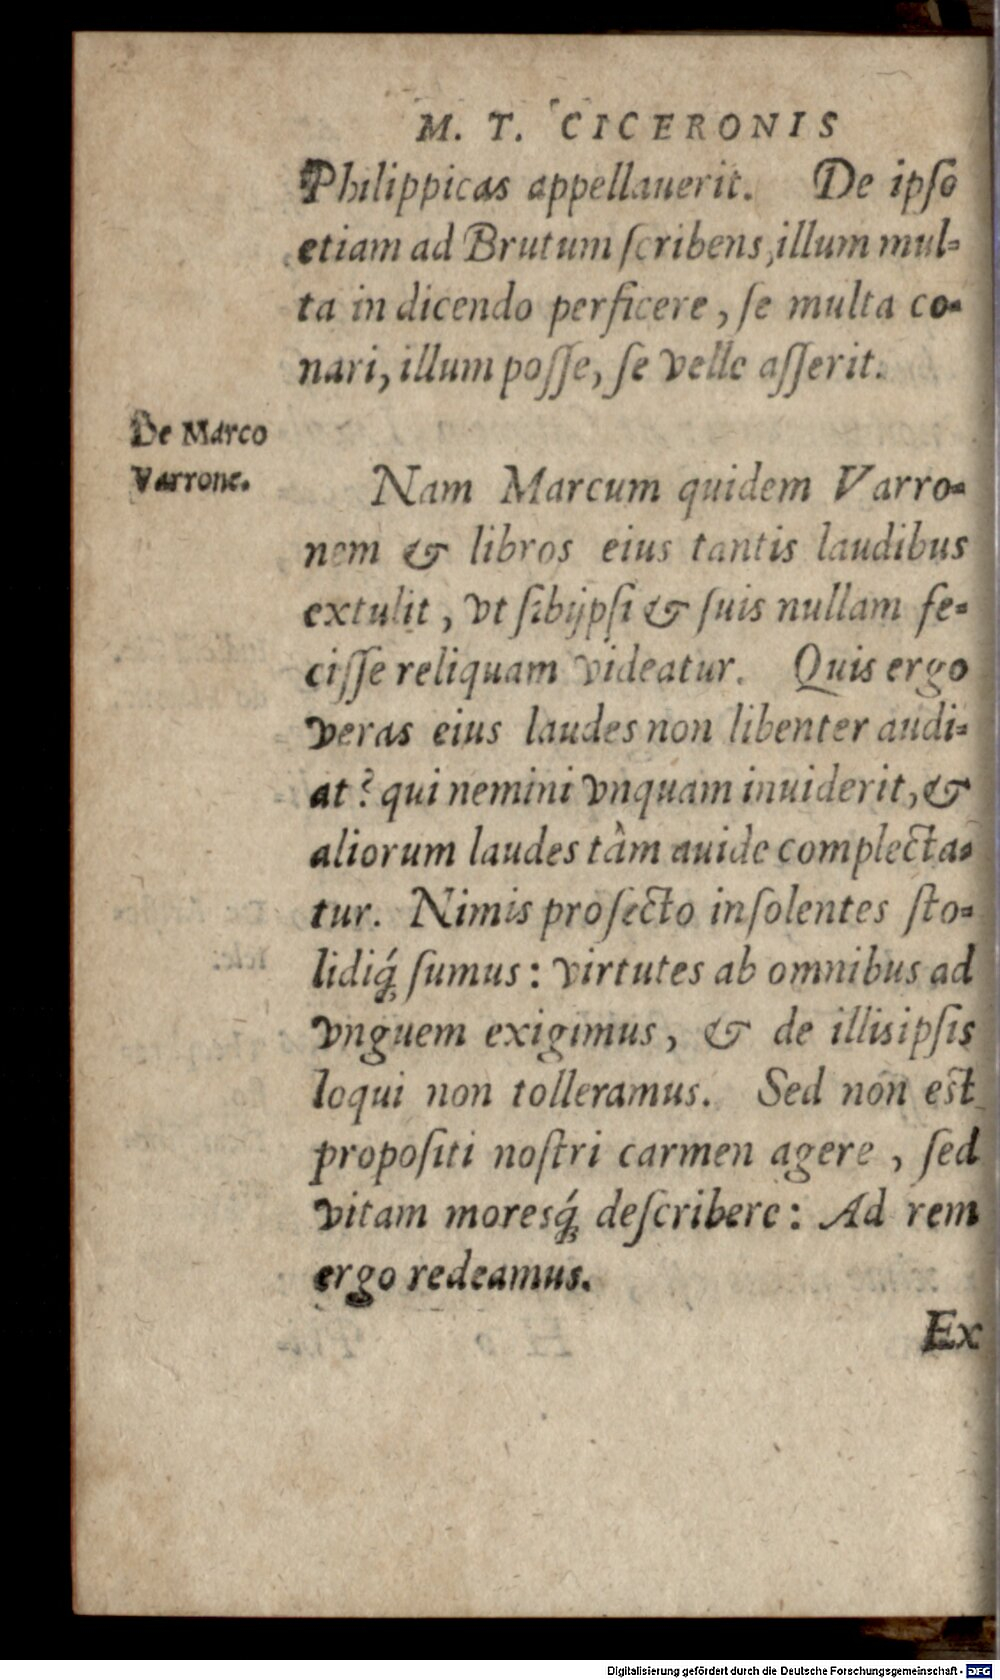 M. T. CICERONIS
Philippicas appellauerit. De ipſo
etiam ad Brutum ſcribens, illum mul-
ta in dicendo perficere, ſe multa co-
nari, illum poſſe, ſe velle aſſerit.
De Marco
Varrone.
Nam Marcum quidem Varro-
nem & libros eius tantis laudibus
extulit, vt ſibijpſi & ſuis nullam fe-
ciſſe reliquam videatur. Quis ergo
veras eius laudes non libenter audi-
at? qui nemini vnquam inuiderit, &
aliorum laudes tàm auide complecta-
tur. Nimis profecto inſolentes ſto-
lidiq́; ſumus: virtutes ab omnibus ad
vnguem exigimus, & de illis ipſis
loqui non tolleramus. Sed non est
propoſiti noſtri carmen agere, ſed
vitam moresq́; deſcribere: Ad rem
ergo redeamus.
Ex
Digitalisierung gefördert durch die Deutsche Forschungsgemeinschaft - DFG